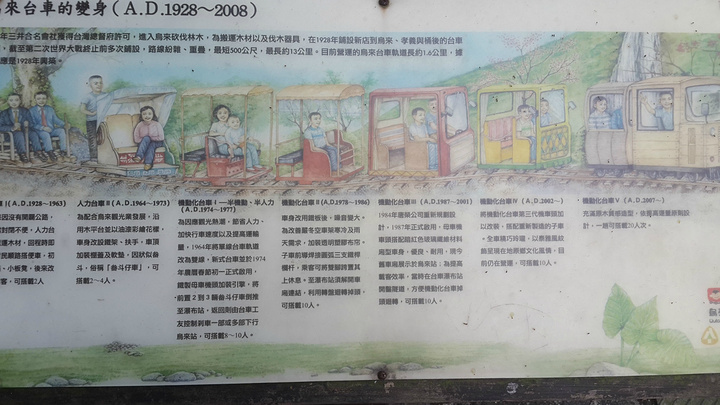 來台車的變身(A.D.1928～2008)
年三井合名會社獲得台灣總督府許可，進入烏來砍伐林木，為搬運木材以及伐木器具，在1928年鋪設新店到烏來、孝義與桶後的台車
，截至第二次世界大戰終止前多次鋪設，路線紛雜、重疊，最短500公尺，最長約13公里。目前營運的烏來台車軌道長約1.6公里，據
應是1928年興築。
(A.D.1928～1963)
因沒有開闢公路，
封閉不便，人力台
運木材，回程時即
民眾搭乘
、小板凳，後來改
客，可搭載2人
人力台車Ⅱ(A.D.1964～1973)
為配合烏來觀光業發展，沿
用木平台並以油漆彩繪花樣，
車身改設鐵架、扶手，車頂
加裝棚蓋及軟墊，因狀似畚
斗，俗稱「畚斗仔車」，可
搭載2～4人。
機動化台車Ⅰ—半機動、半人力
(A.D.1974～1977)
為因應觀光熱潮，節省人力、
加快行車速度以及提高運輸
量，1964年將單線台車軌道
改為雙線，新式台車並於1974
年農曆春節初一正式啟用，
鐵製母車機頭加裝引擎，將
前置2到3輛畚斗仔車倒推
至瀑布站，返回則由台車工
友控制剎車一部或多部下行
烏來站，可搭載8～10人。
機動化台車Ⅱ(A.D.1978～1986)
車身改用鋁板後，噪音變大。
為改善嚴冬空車架寒冷及雨
天需求，加裝透明塑膠布帘。
子車前導椅接圓弧三支鐵桿
欄杆，乘客可將雙腳跨置其
上休息。至瀑布站須解開車
廂連結，利用轉盤迴轉掉頭，
可搭載10人。
機動化台車Ⅲ(A.D.1987～2001)
1984年遊樂公司重新規劃設
計，1987年正式啟用，母車機
車頭搭配酷紅色玻璃纖維材料
廂型車身，優良、耐用，現今
舊車廂展示於烏來站；為提高
載客效率，當時在台車瀑布站
開鑿隧道，方便機動化台車掉
頭迴轉，可搭載10人。
機動化台車Ⅳ(A.D.2002～)
將機動化台車第三代機車頭加
以改裝，搭配新製造的子車
，全車精巧玲瓏，以原舊風紋
飾呈現在地原鄉文化風情，目
前仍在營運，可搭載10人。
機動化台車Ⅴ(A.D.2007～)
充滿原木質樸造型，係提高運量原則設
計，一趟可搭載20人次。